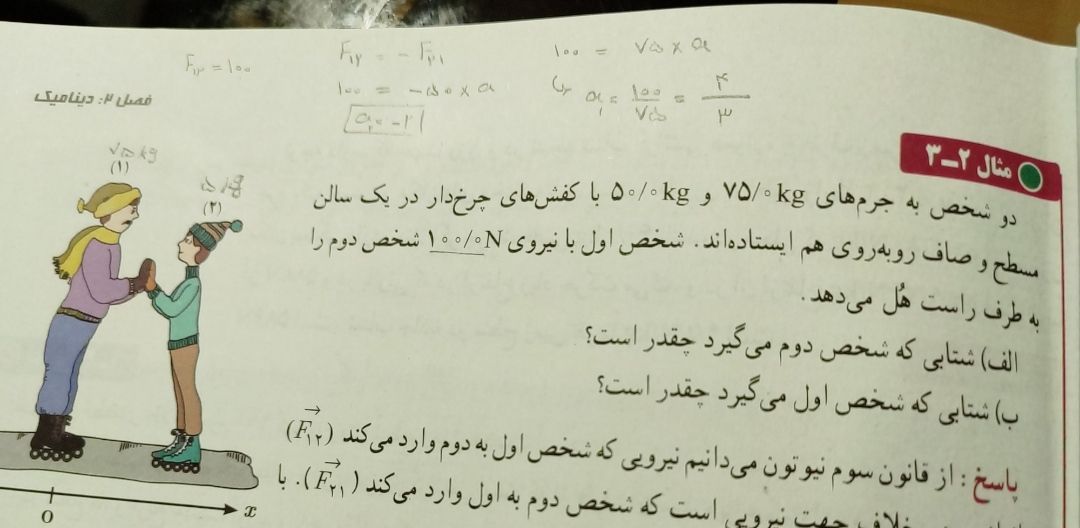 F₁₂ = ۱۰۰
F₁₂ = - F₂₁
۱۰۰ = -۵۰ × a
a₂ = -۲
۱۰۰ = ۷۵ × a
a₁ = ۱۰۰/۷۵ = ۴/۳
فصل ۲: دینامیک
مثال ۲-۳
۷۵ kg
(۱)
۵۰ kg
(۲)
دو شخص به جرم‌های ۷۵/۰ kg و ۵۰/۰ kg با کفش‌های چرخ‌دار در یک سالن
مسطح و صاف روبه‌روی هم ایستاده‌اند. شخص اول با نیروی ۱۰۰/۰ N شخص دوم را
به طرف راست هُل می‌دهد.
الف) شتابی که شخص دوم می‌گیرد چقدر است؟
ب) شتابی که شخص اول می‌گیرد چقدر است؟
پاسخ: از قانون سوم نیوتون می‌دانیم نیرویی که شخص اول به دوم وارد می‌کند (F⃗₁₂)
خلاف جهت نیرویی است که شخص دوم به اول وارد می‌کند (F⃗₂₁). با
O
x